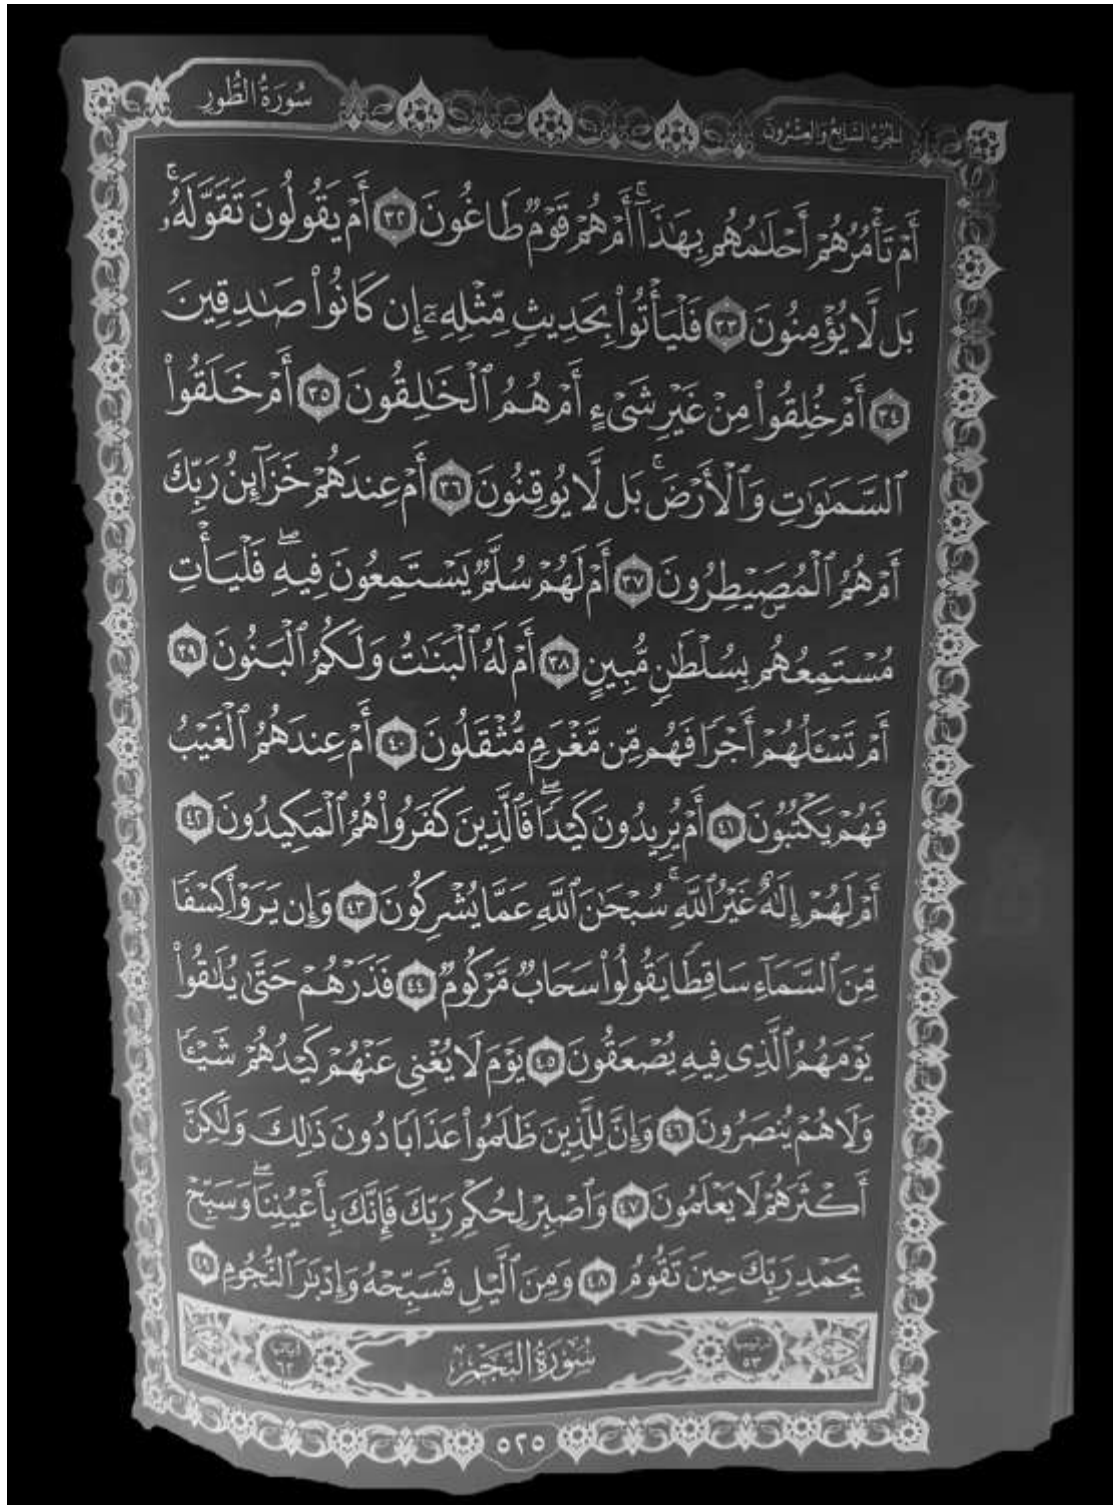 سُورَةُ الطُّورِ
الجُزءُ السَّابِعُ وَالعِشْرُونَ
أَمْ تَأْمُرُهُمْ أَحْلَٰمُهُم بِهَٰذَآۚ أَمْ هُمْ قَوْمٞ طَاغُونَ ٣٢ أَمْ يَقُولُونَ تَقَوَّلَهُۥۚ
بَل لَّا يُؤْمِنُونَ ٣٣ فَلْيَأْتُوا۟ بِحَدِيثٖ مِّثْلِهِۦٓ إِن كَانُوا۟ صَٰدِقِينَ
٣٤ أَمْ خُلِقُوا۟ مِنْ غَيْرِ شَىْءٍ أَمْ هُمُ ٱلْخَٰلِقُونَ ٣٥ أَمْ خَلَقُوا۟
ٱلسَّمَٰوَٰتِ وَٱلْأَرْضَۚ بَل لَّا يُوقِنُونَ ٣٦ أَمْ عِندَهُمْ خَزَآئِنُ رَبِّكَ
أَمْ هُمُ ٱلْمُصَۣيْطِرُونَ ٣٧ أَمْ لَهُمْ سُلَّمٞ يَسْتَمِعُونَ فِيهِۖ فَلْيَأْتِ
مُسْتَمِعُهُم بِسُلْطَٰنٖ مُّبِينٍ ٣٨ أَمْ لَهُ ٱلْبَنَٰتُ وَلَكُمُ ٱلْبَنُونَ ٣٩
أَمْ تَسْـَٔلُهُمْ أَجْرٗا فَهُم مِّن مَّغْرَمٖ مُّثْقَلُونَ ٤٠ أَمْ عِندَهُمُ ٱلْغَيْبُ
فَهُمْ يَكْتُبُونَ ٤١ أَمْ يُرِيدُونَ كَيْدٗاۖ فَٱلَّذِينَ كَفَرُوا۟ هُمُ ٱلْمَكِيدُونَ ٤٢
أَمْ لَهُمْ إِلَٰهٌ غَيْرُ ٱللَّهِۚ سُبْحَٰنَ ٱللَّهِ عَمَّا يُشْرِكُونَ ٤٣ وَإِن يَرَوْا۟ كِسْفٗا
مِّنَ ٱلسَّمَآءِ سَاقِطٗا يَقُولُوا۟ سَحَابٞ مَّرْكُومٞ ٤٤ فَذَرْهُمْ حَتَّىٰ يُلَٰقُوا۟
يَوْمَهُمُ ٱلَّذِى فِيهِ يُصْعَقُونَ ٤٥ يَوْمَ لَا يُغْنِى عَنْهُمْ كَيْدُهُمْ شَيْـٔٗا
وَلَا هُمْ يُنصَرُونَ ٤٦ وَإِنَّ لِلَّذِينَ ظَلَمُوا۟ عَذَابٗا دُونَ ذَٰلِكَ وَلَٰكِنَّ
أَكْثَرَهُمْ لَا يَعْلَمُونَ ٤٧ وَٱصْبِرْ لِحُكْمِ رَبِّكَ فَإِنَّكَ بِأَعْيُنِنَاۖ وَسَبِّحْ
بِحَمْدِ رَبِّكَ حِينَ تَقُومُ ٤٨ وَمِنَ ٱلَّيْلِ فَسَبِّحْهُ وَإِدْبَٰرَ ٱلنُّجُومِ ٤٩
ترتيبها ٥٣ سُورَةُ النَّجْمِ آياتها ٦٢
٥٢٥